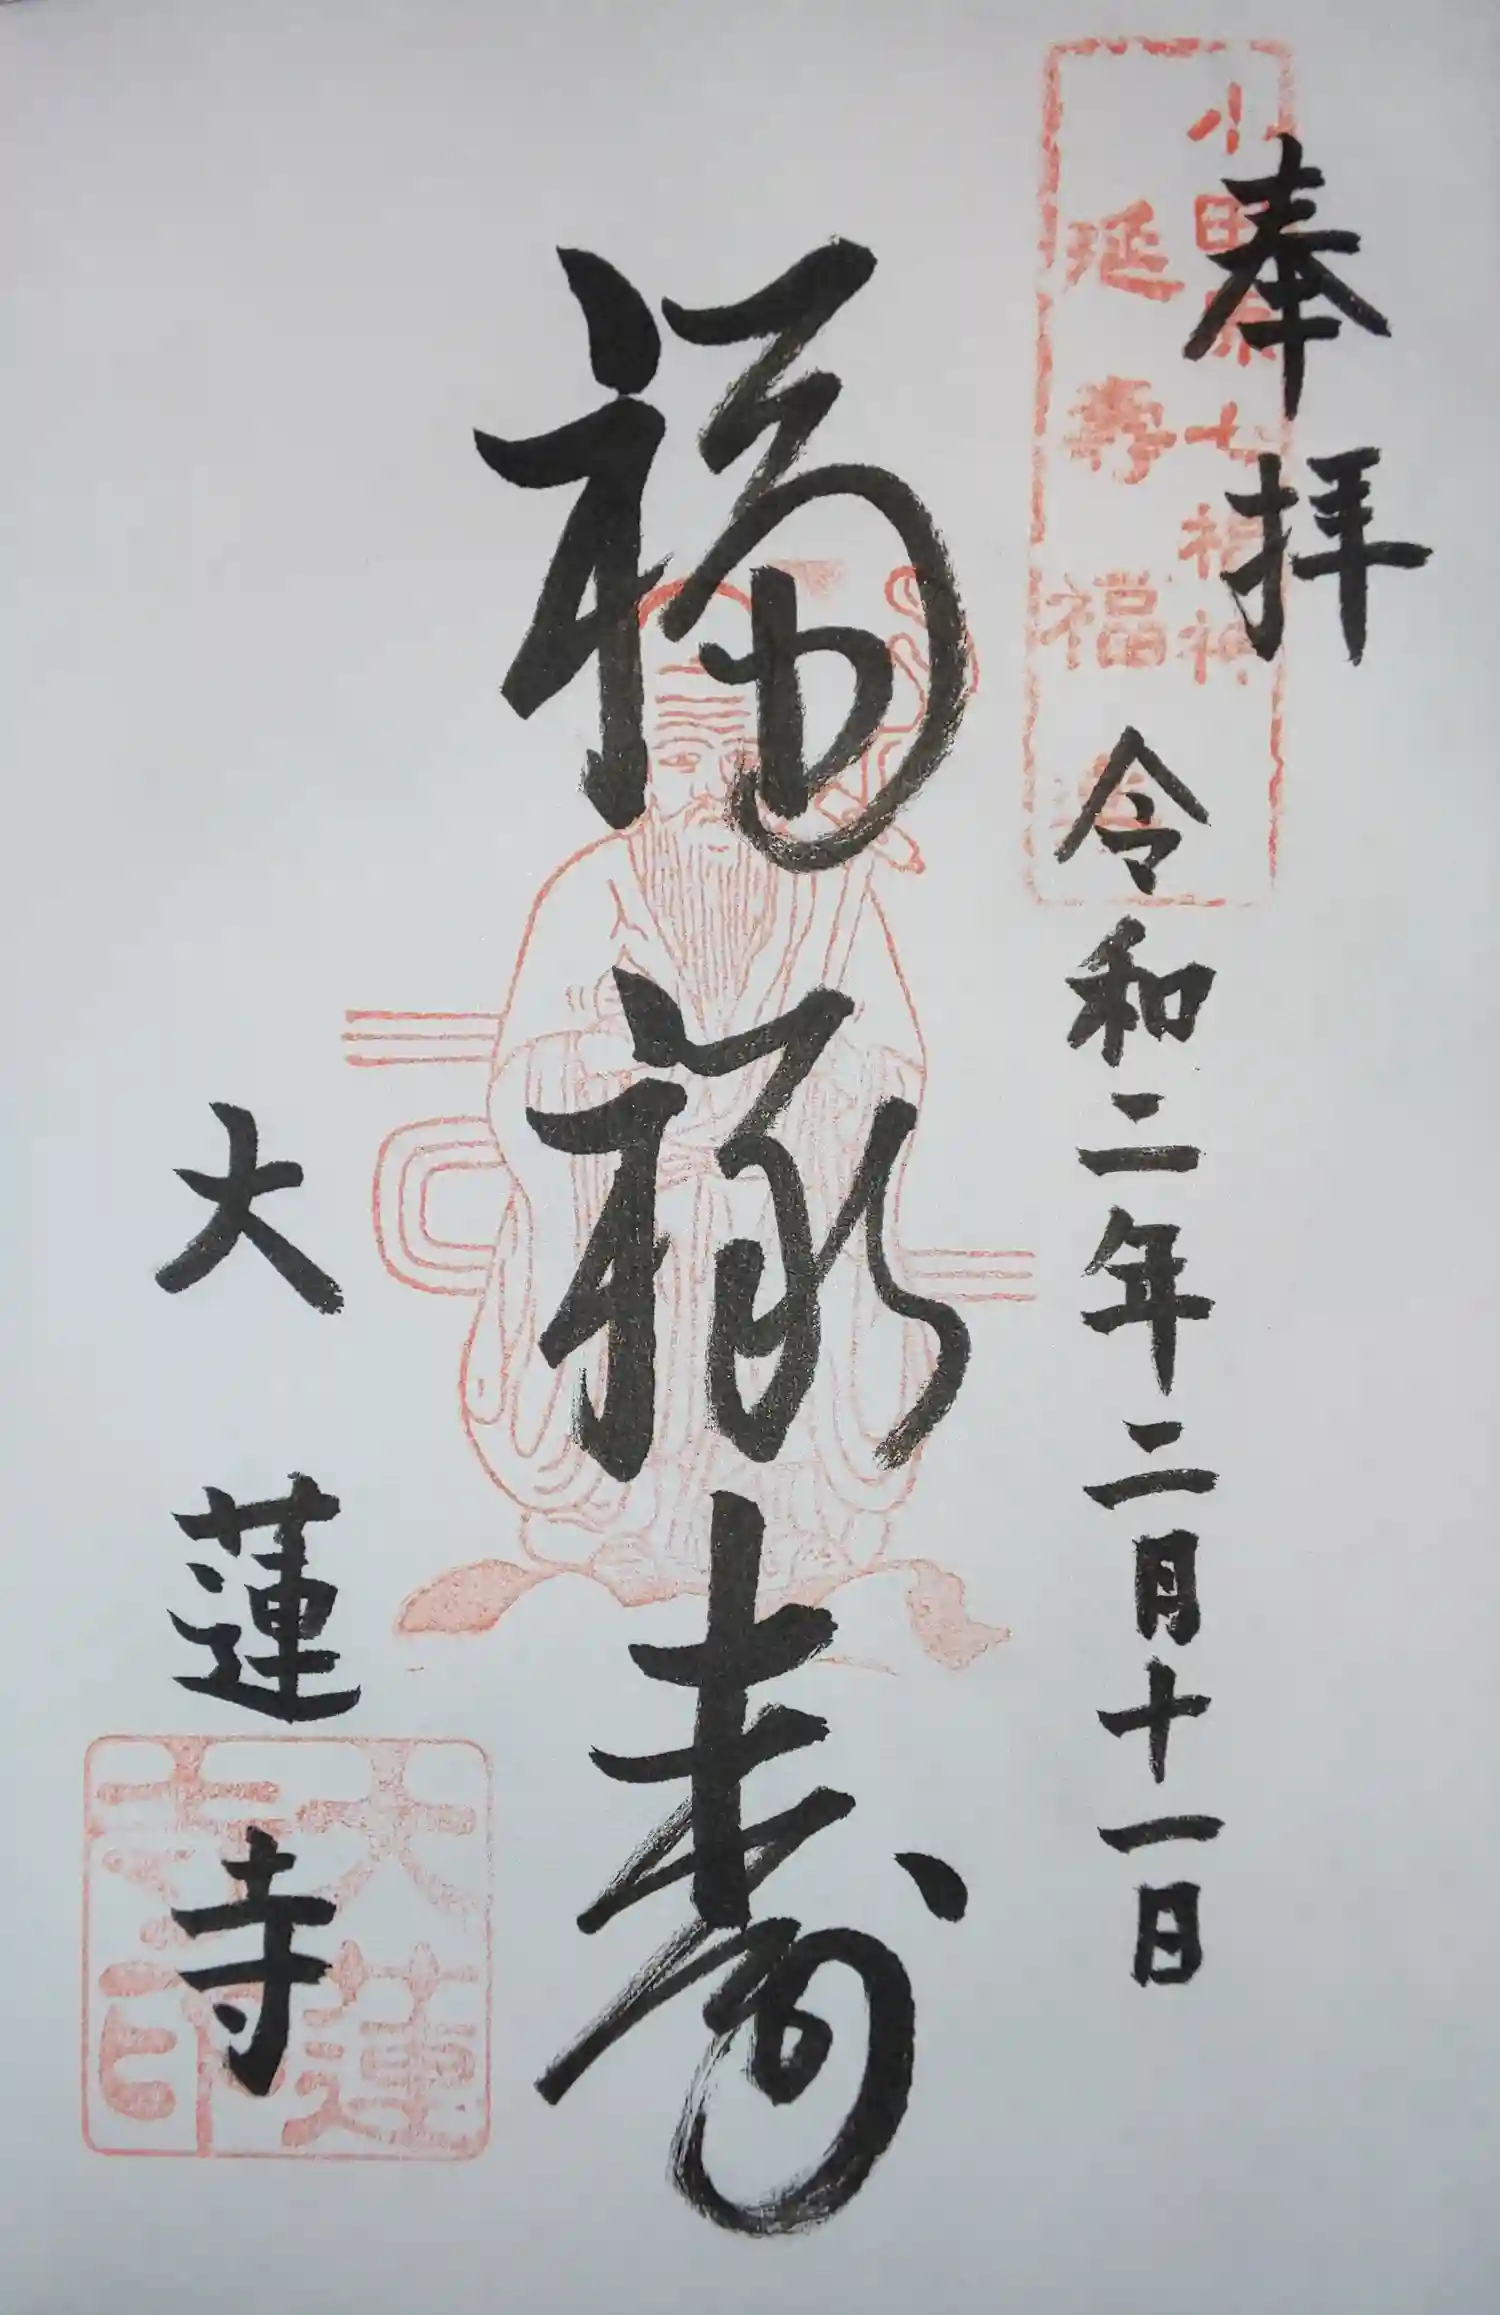 奉拝
小田原七福神
延寿福
令和二年二月十一日
福禄寿
大蓮寺
大蓮寺印